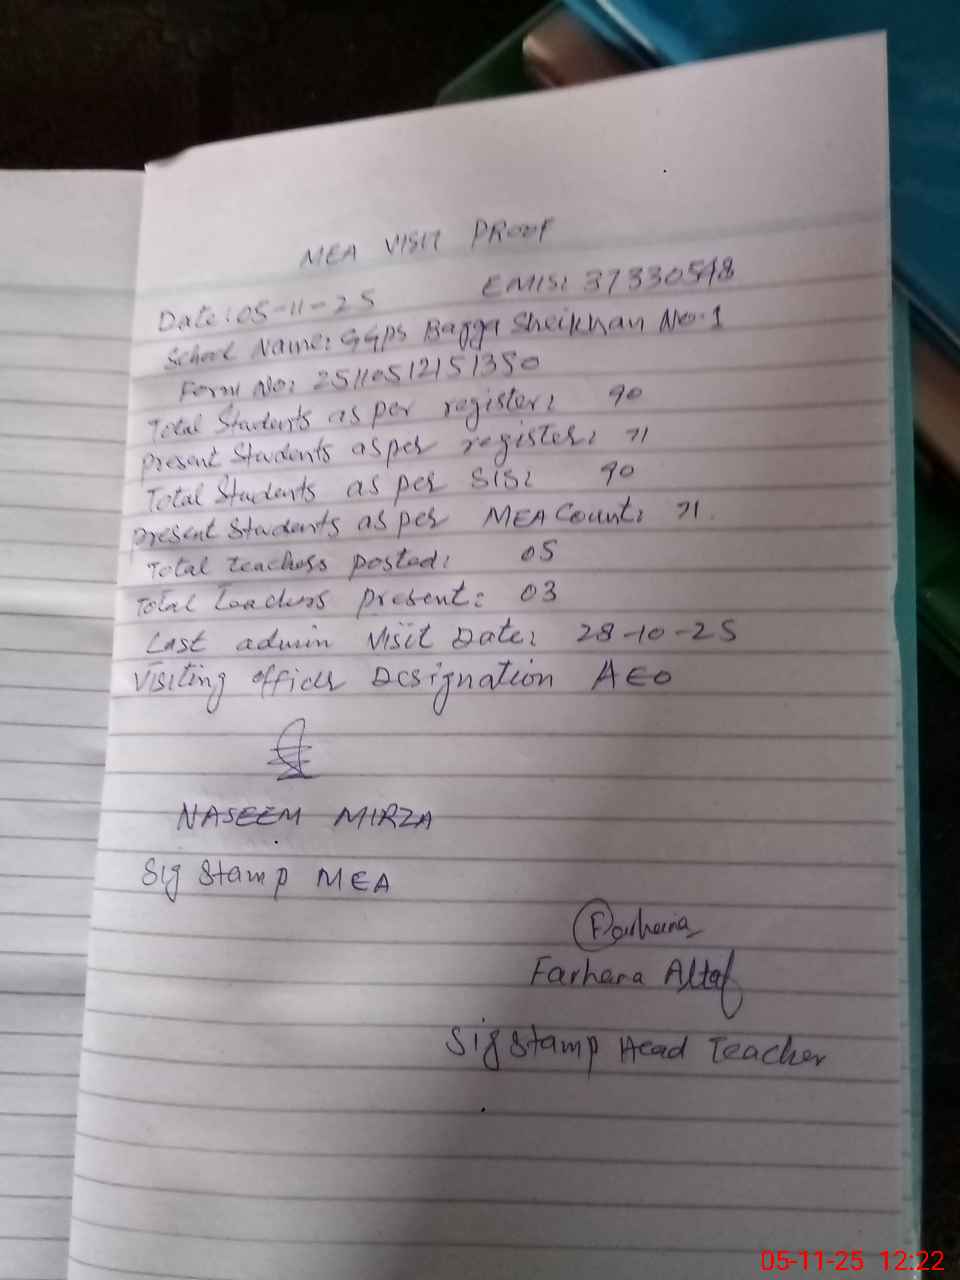 MEA VISIT PROOF
Date: 05-11-25 EMIS: 37330548
School Name: GGPS Bagga Sheikhan No.1
Form No: 25110512151350
Total Students as per register: 90
Present Students as per register: 71
Total Students as per SIS: 90
Present Students as per MEA Count: 71.
Total teachers posted: 05
Total teachers present: 03
Last admin Visit Date: 28-10-25
Visiting officer Designation AEO
NASEEM MIRZA
Sig Stamp MEA
Farhana
Farhana Altaf
Sig Stamp Head Teacher
05-11-25 12:22